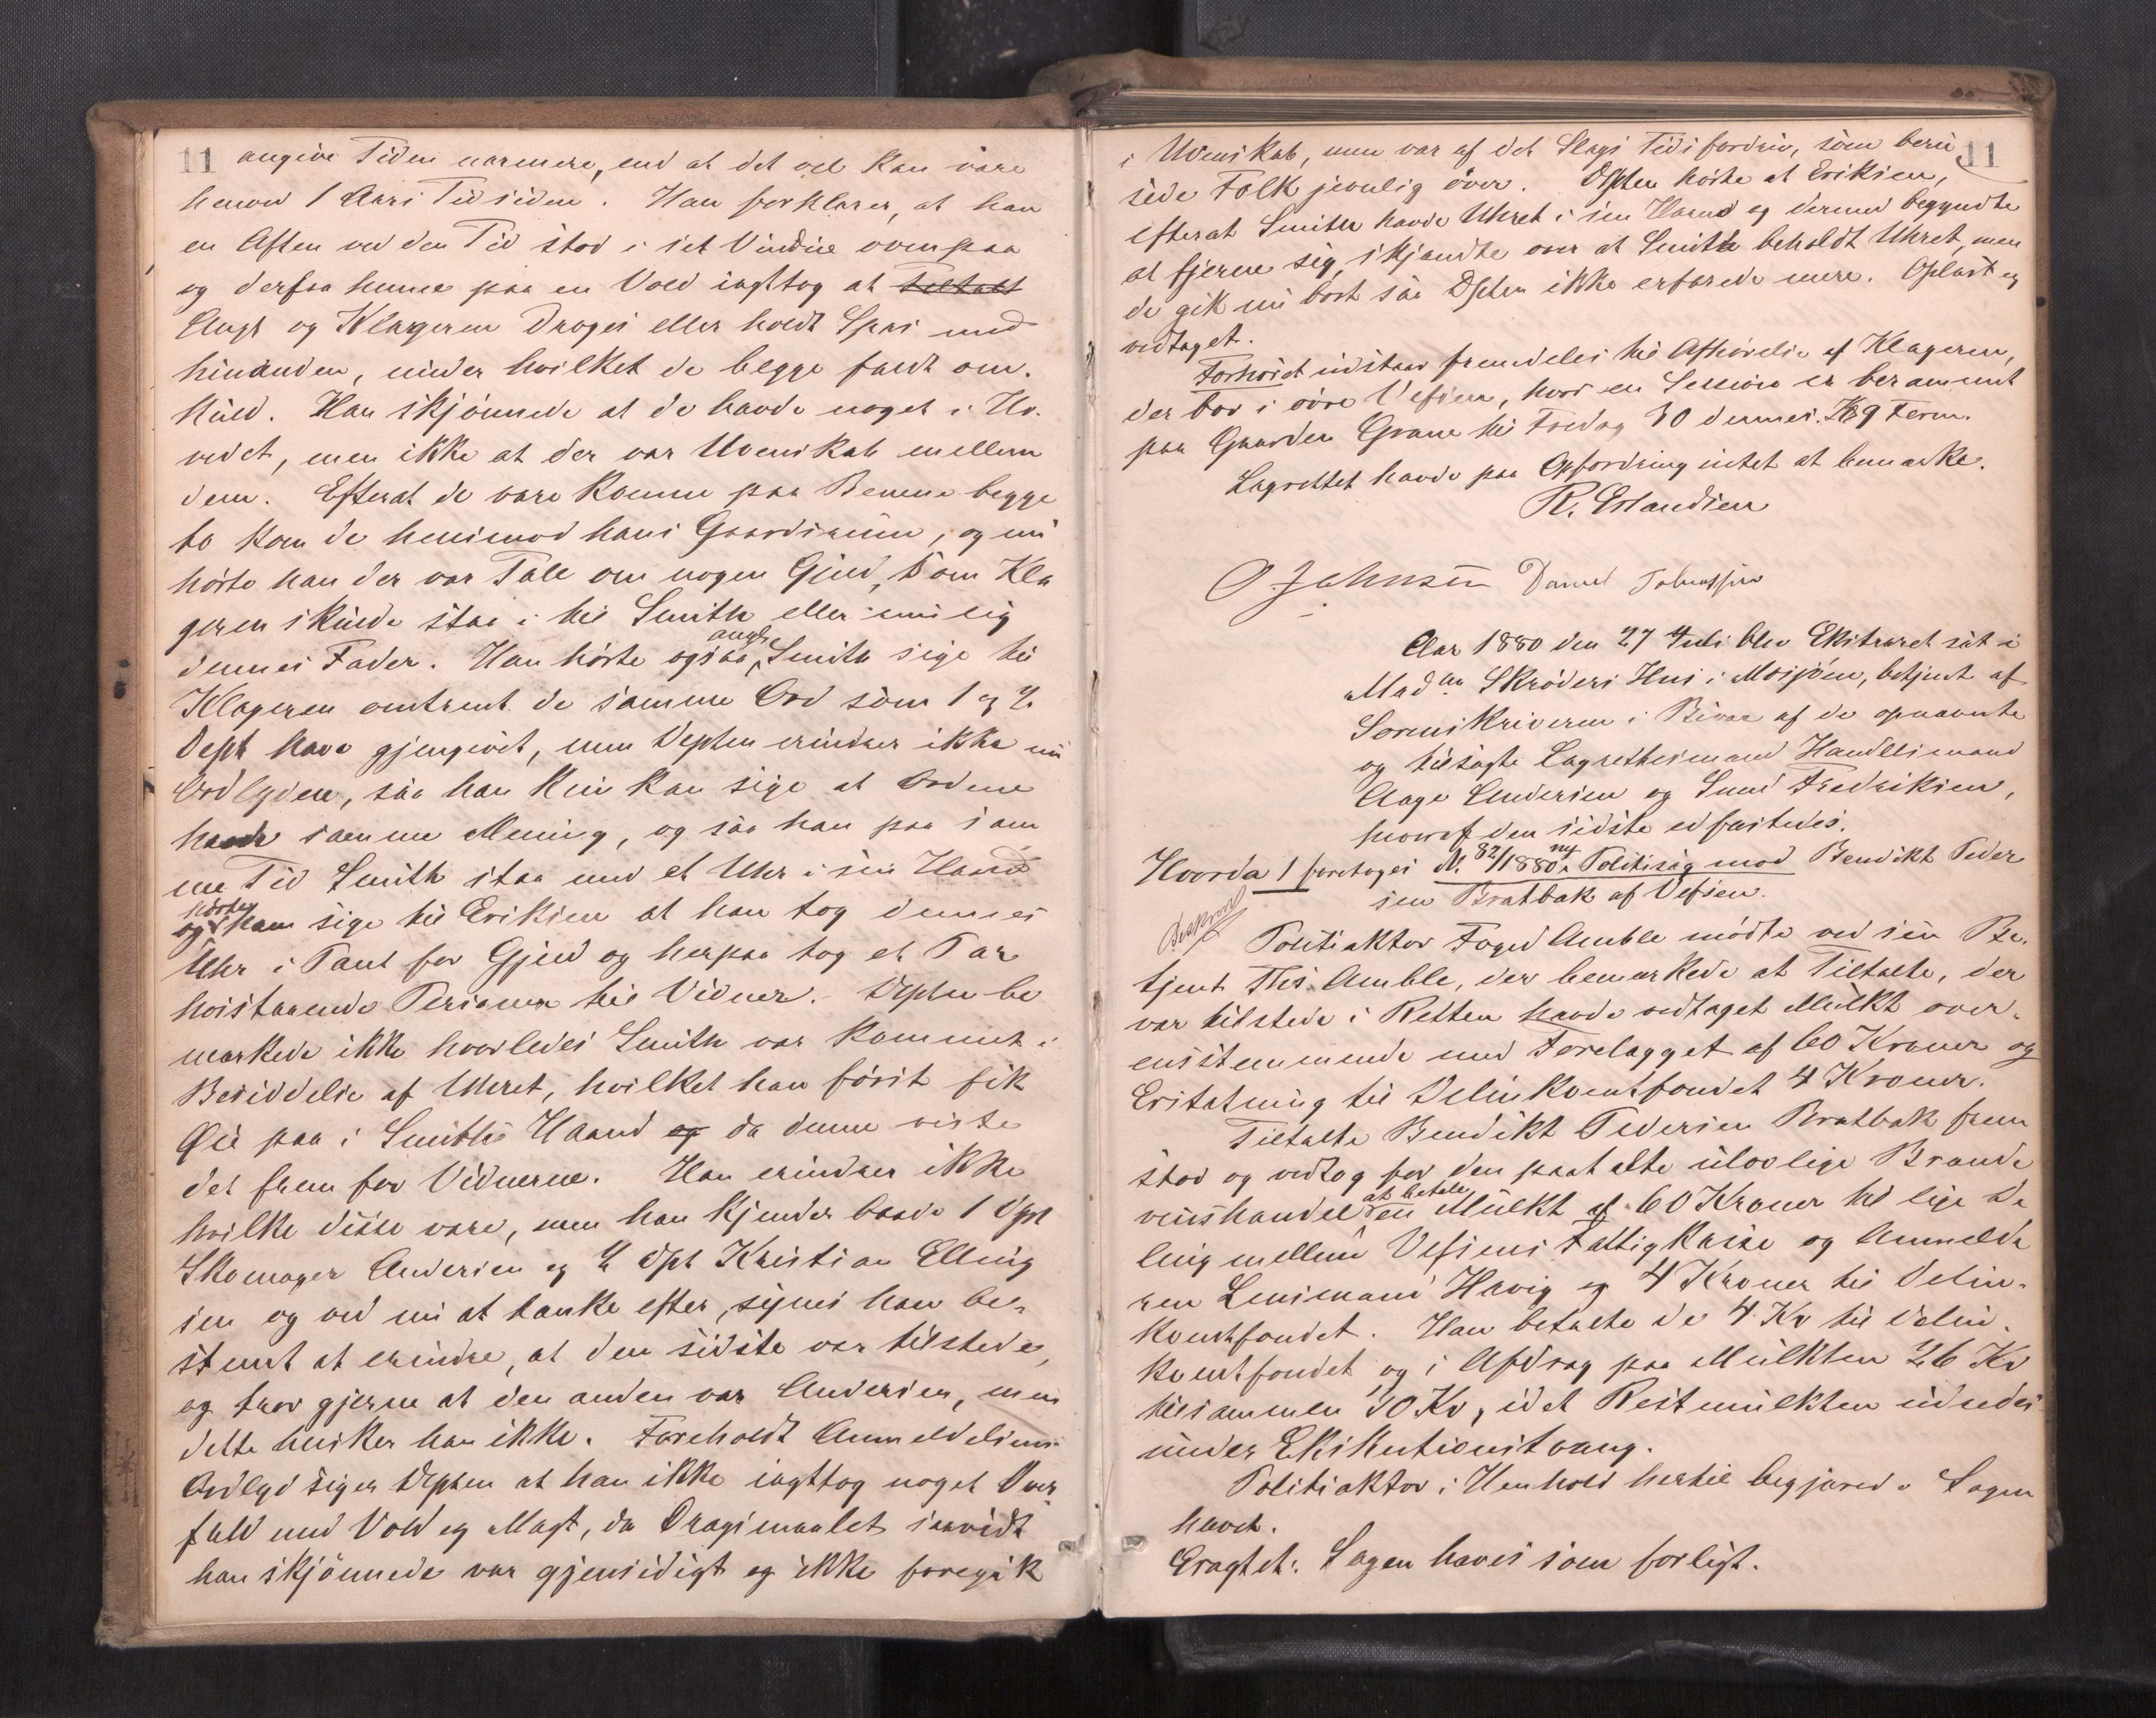 11 angive Tiden nærmere, end at det vel kan være
henved 1 Aars Tid siden. Han forklarer, at han
en Aften ved den Tid stod i sit Vindue ovenpaa
og derfra henne paa en Vold iagttog at Tiltalt
Angb og Klageren droges eller holdt Spas med
hinanden, under hvilket de begge faldt om-
kuld. Han skjønnede at de havde noget i Ho-
vedet, men ikke at der var Uvenskab mellem
dem. Efterat de vare komne paa Benene begge
to kom de henimod hans Gaardsrum, og nu
hørte han der var Tale om nogen Gjæld, som Kla
geren skulde staa i til Smith eller muelig
dennes Fader. Han hørte ogsaa angb Smith sige til
Klageren omtrent de samme Ord som 1 og 2
Dept have gjengivet, men Depten erindrer ikke nu
Ordlyden, saa han kun kan sige at Ordene
havde samme Mening, og saa han paa sam
me Tid Smith staa med et Uhr i sin Haand
og hørte ham sige til Eriksen at han tog dennes
Uhr i Pant for Gjæld og herpaa tog et Par
hosstaaende Personer til Vidner. Depten be
mærkede ikke hvorledes Smith var kommet i
Besiddelse af Uhret, hvilket han først fik
Øie paa i Smiths Haand og da denne viste
det frem for Vidnerne. Han erindrer ikke
hvilke disse vare, men han kjender baade 1 Dpt
Skomager Andersen og 2 dpt Kristian Elling
sen og ved nu at tænke efter, synes han be-
stemt at erindre, at den sidste var tilstede,
og tror gjerne at den anden var Andersen, men
dette husker han ikke. Foreholdt Anmeldelsens
Ordlyd siger Depten at han ikke iagttog noget Over
fald med Vold og Magt, da Dragsmaalet saavidt
han skjønnede var gjensidigt og ikke foregik
i Uvenskab, men var af det Slags Tidsfordriv, som beru 11
sede Folk jevnlig øver. Dpten hørte at Eriksen,
efterat Smith havde Uhret i sin Haand og dermed begyndte
at fjerne sig, skjændte over at Smith beholdt Uhret, men
de gik nu bort saa Dpten ikke erfarede mere. Oplæst og
vedtaget.
Forhøret udstaar fremdeles til Afhørelse af Klageren,
der bor i øvre Vefsen, hvor en Session er berammet
paa Gaarden Grane til Fredag 30 dennes. Kl 9 Form.
Lagrettet havde paa Opfordring intet at bemærke.
R. Erlandsen
O. Johnsen Daniel Tobiassen
Aar 1880 den 27 Juli blev Ekstraret sat i
Mad Skrøders Hus i Mosjøen, betjent af
Sorenskriveren i Bivær af de opnævnte
og tilsagte Lagrettesmænd Handelsmand
Aage Andersen og Fredriksen,
hvoraf den sidste edfæstedes.
Hvorda 1 foretoges N. 82/1880 ny Politisag mod Benedikt Peder
sen Bratbak af Vefsen.
Politiaktor Foged Amble mødte ved sin Be-
tjent Ths. Amble, der bemærkede at Tiltalte, der
var tilstede i Retten havde vedtaget Mulkt over-
ensstemmende med Forelægget af 60 Kroner og
Erstatning til Delinkventfondet 4 Kroner.
Tiltalte Bendikt Pedersen Bratbak frem
stod og vedtog for den paatalte ulovlige Brænde
vinshandel at betale en Mulkt af 60 Kroner til lige De
ling mellem Vefsens Fattigkasse og Anmelde
ren Lensmand Havig og 4 Kroner til Delin-
kventfondet. Han betalte de 4 Kr til Delin-
kventfondet og i Afdrag paa Mulkten 26 Kr
tilsammen 30 Kr, idet Restmulkten udredes
under Eksekutionstvang.
Politiaktor i Henhold hertil begjærede Sagen
hævet.
Eragtet: Sagen hæves som forligt.